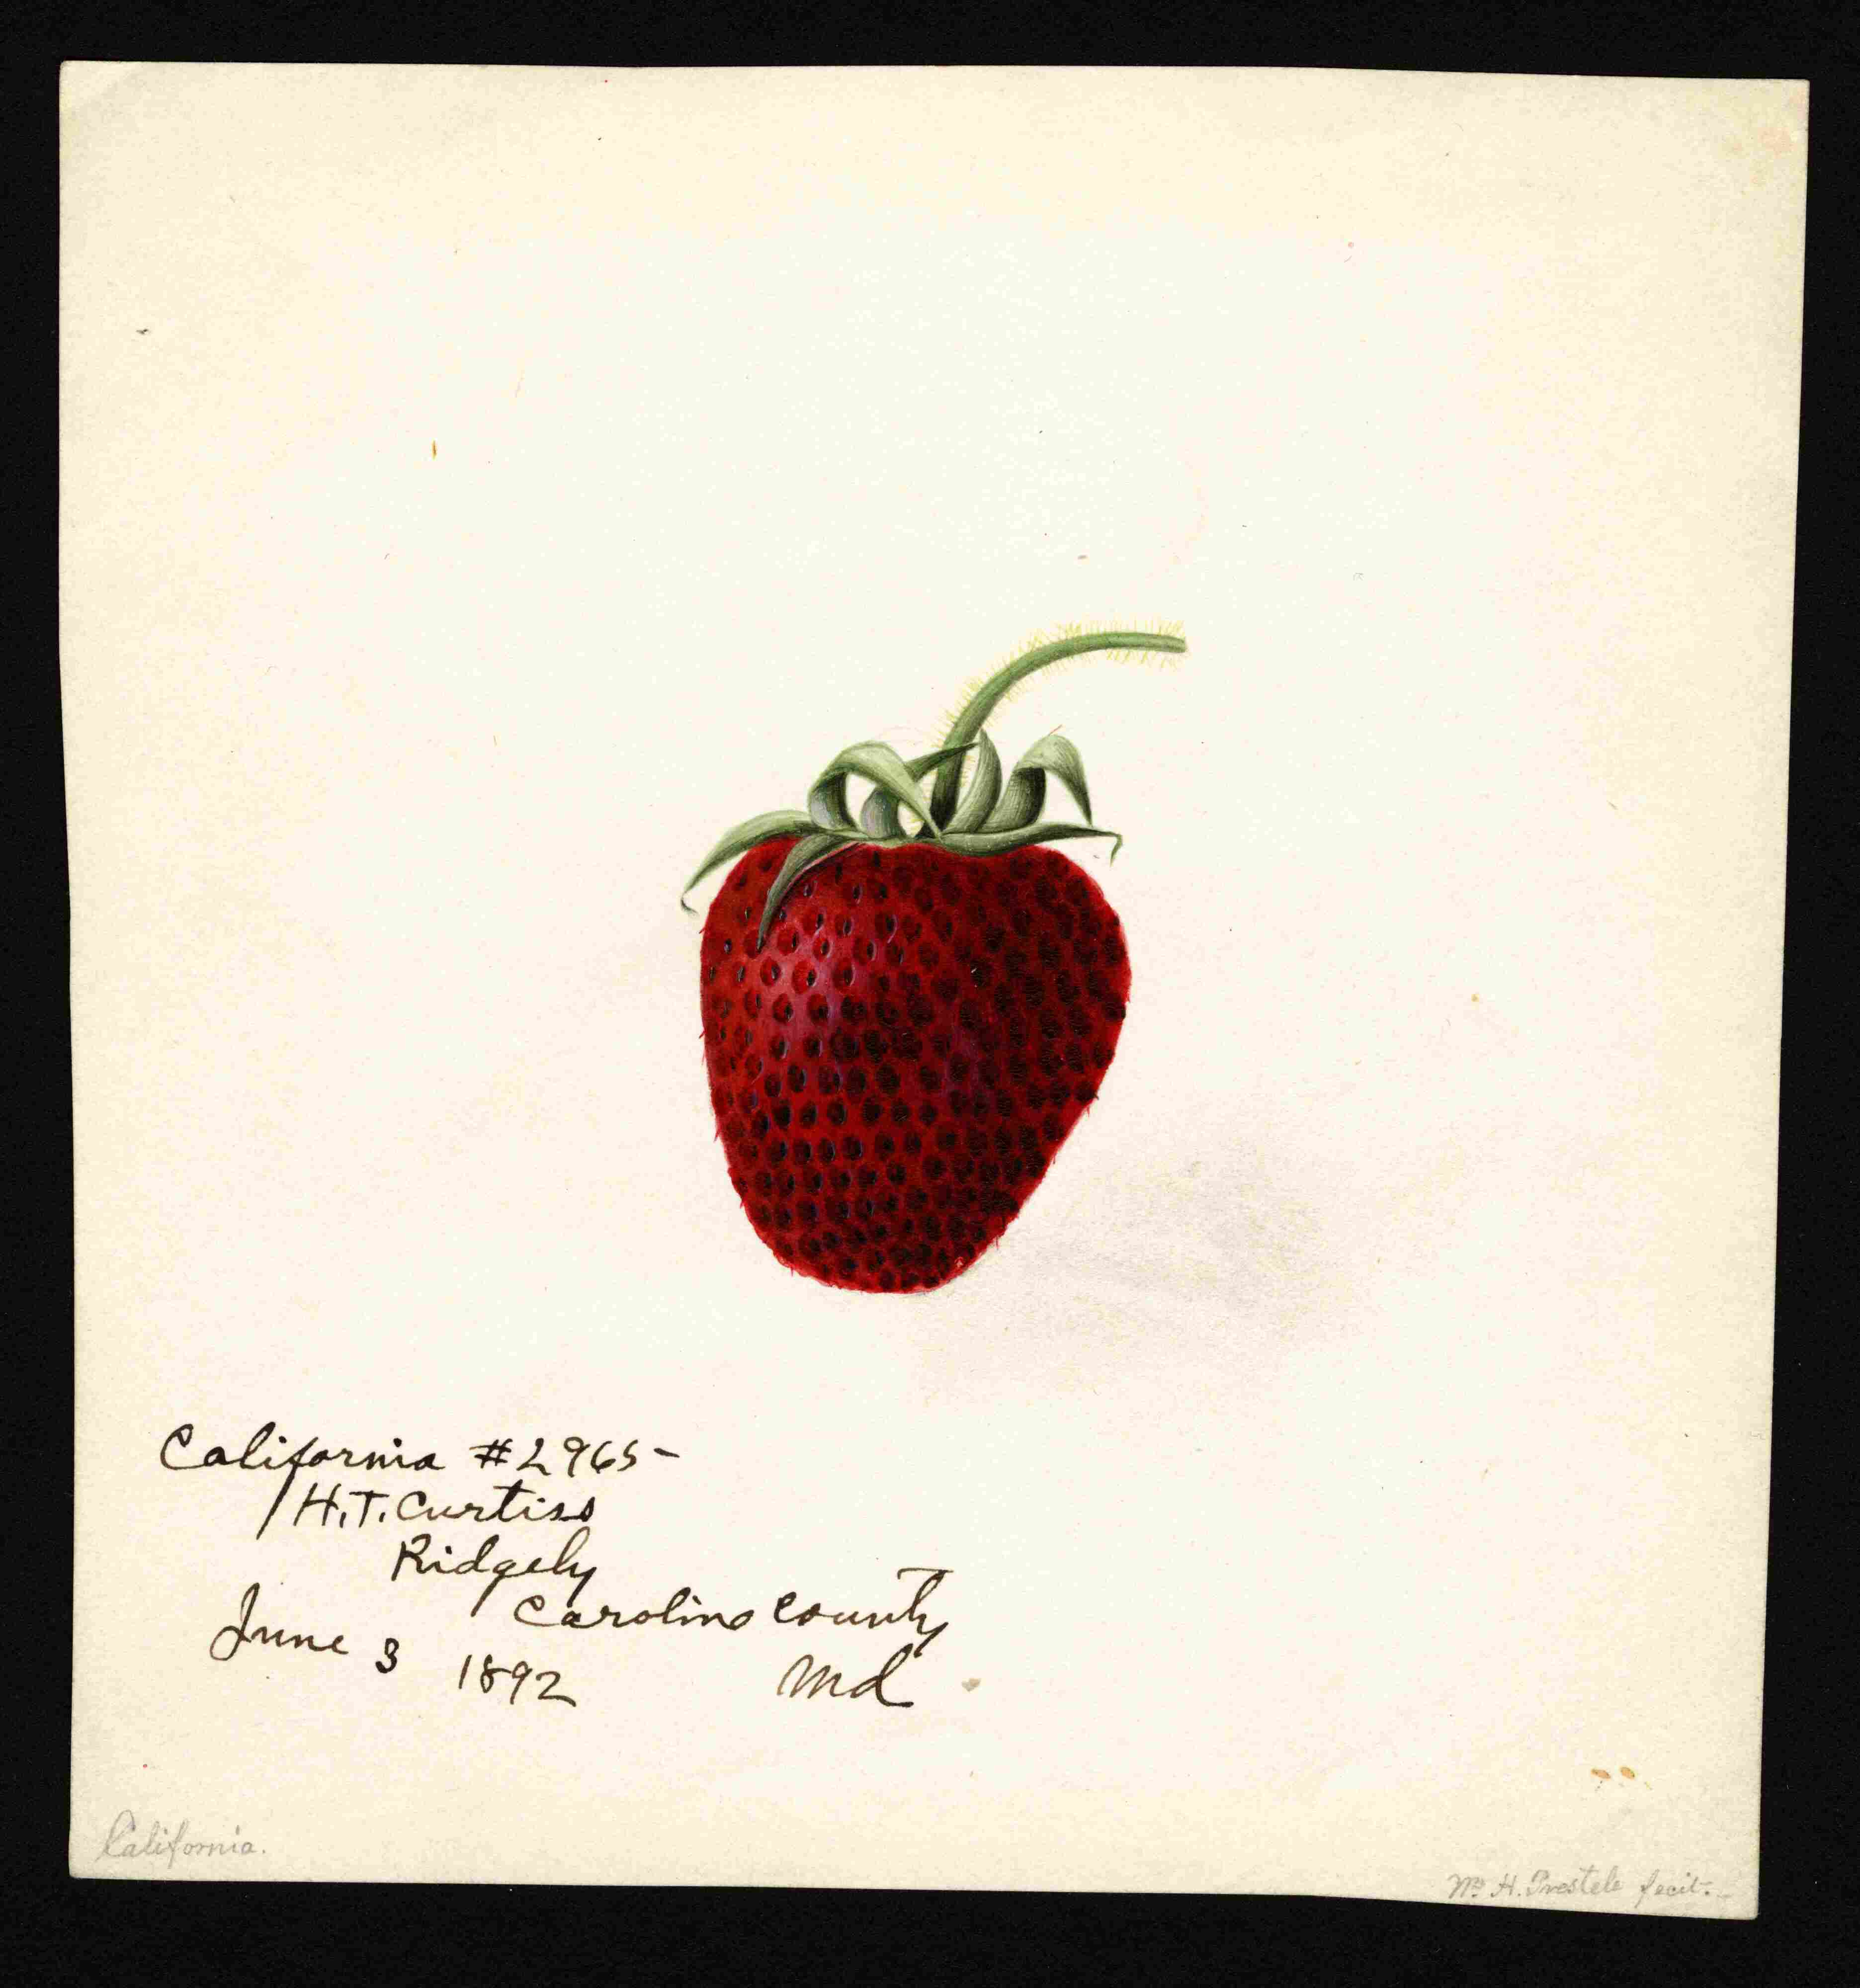 California #2965-
H.T. Curtiss
Ridgely
Caroline County
June 3 1892 Md
California.
Wm. H. Prestele fecit.